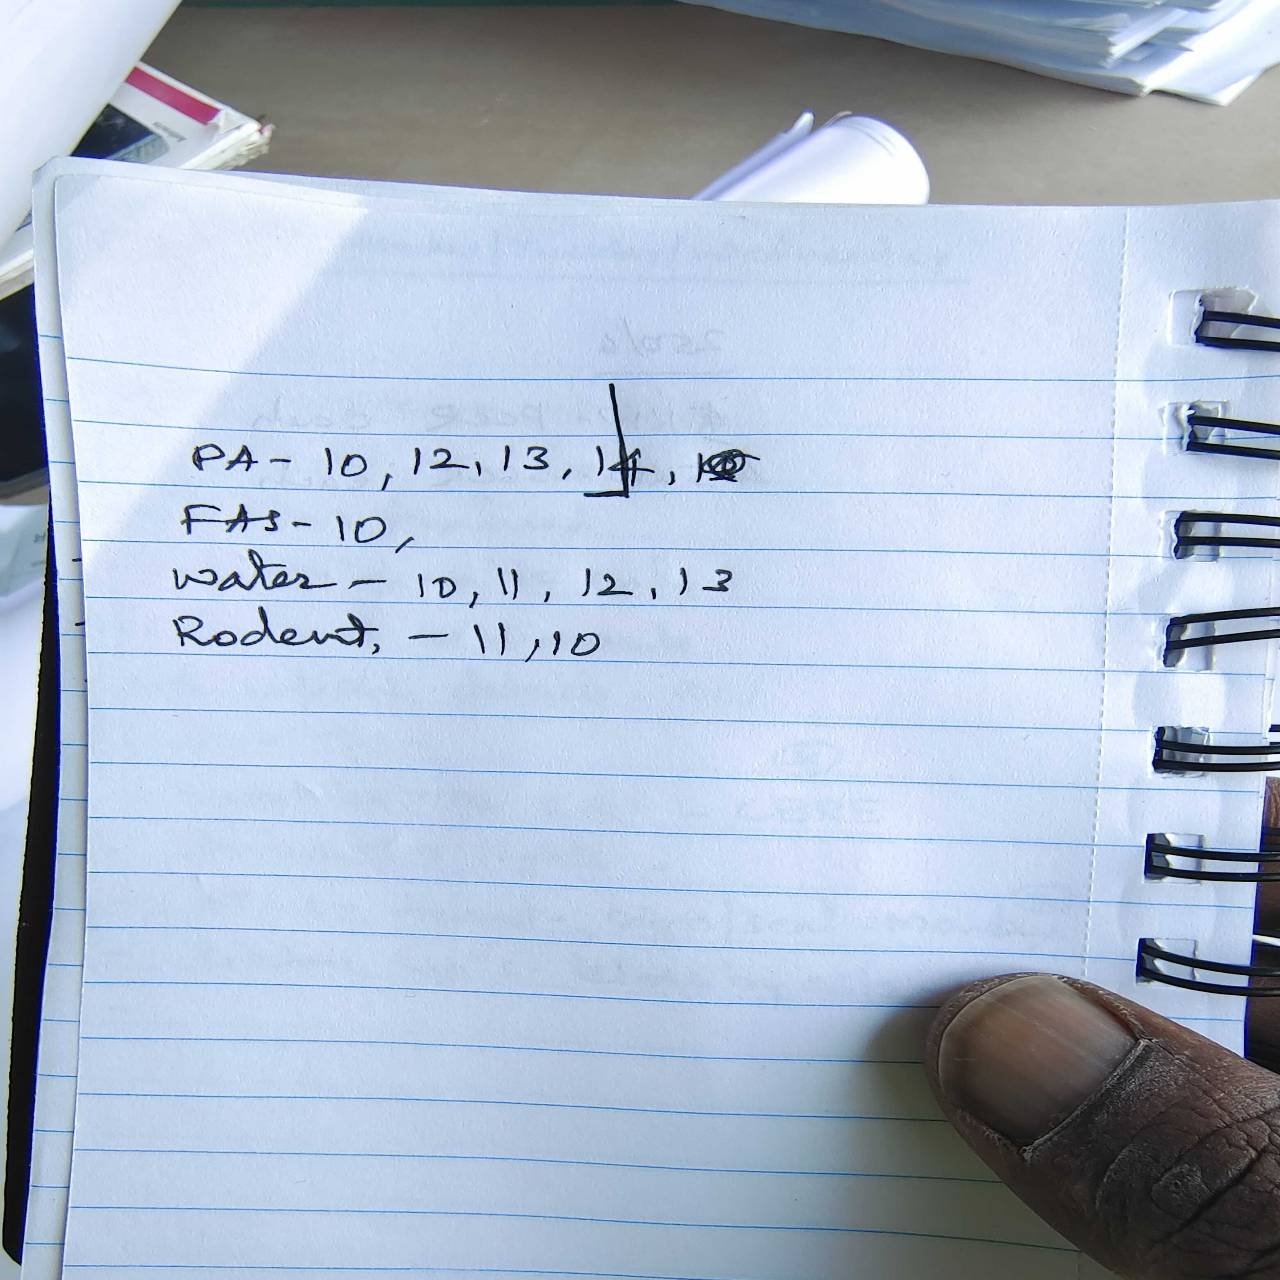 PA - 10, 12, 13, 14,
FAS - 10,
Water - 10, 11, 12, 13
Rodent, - 11, 10